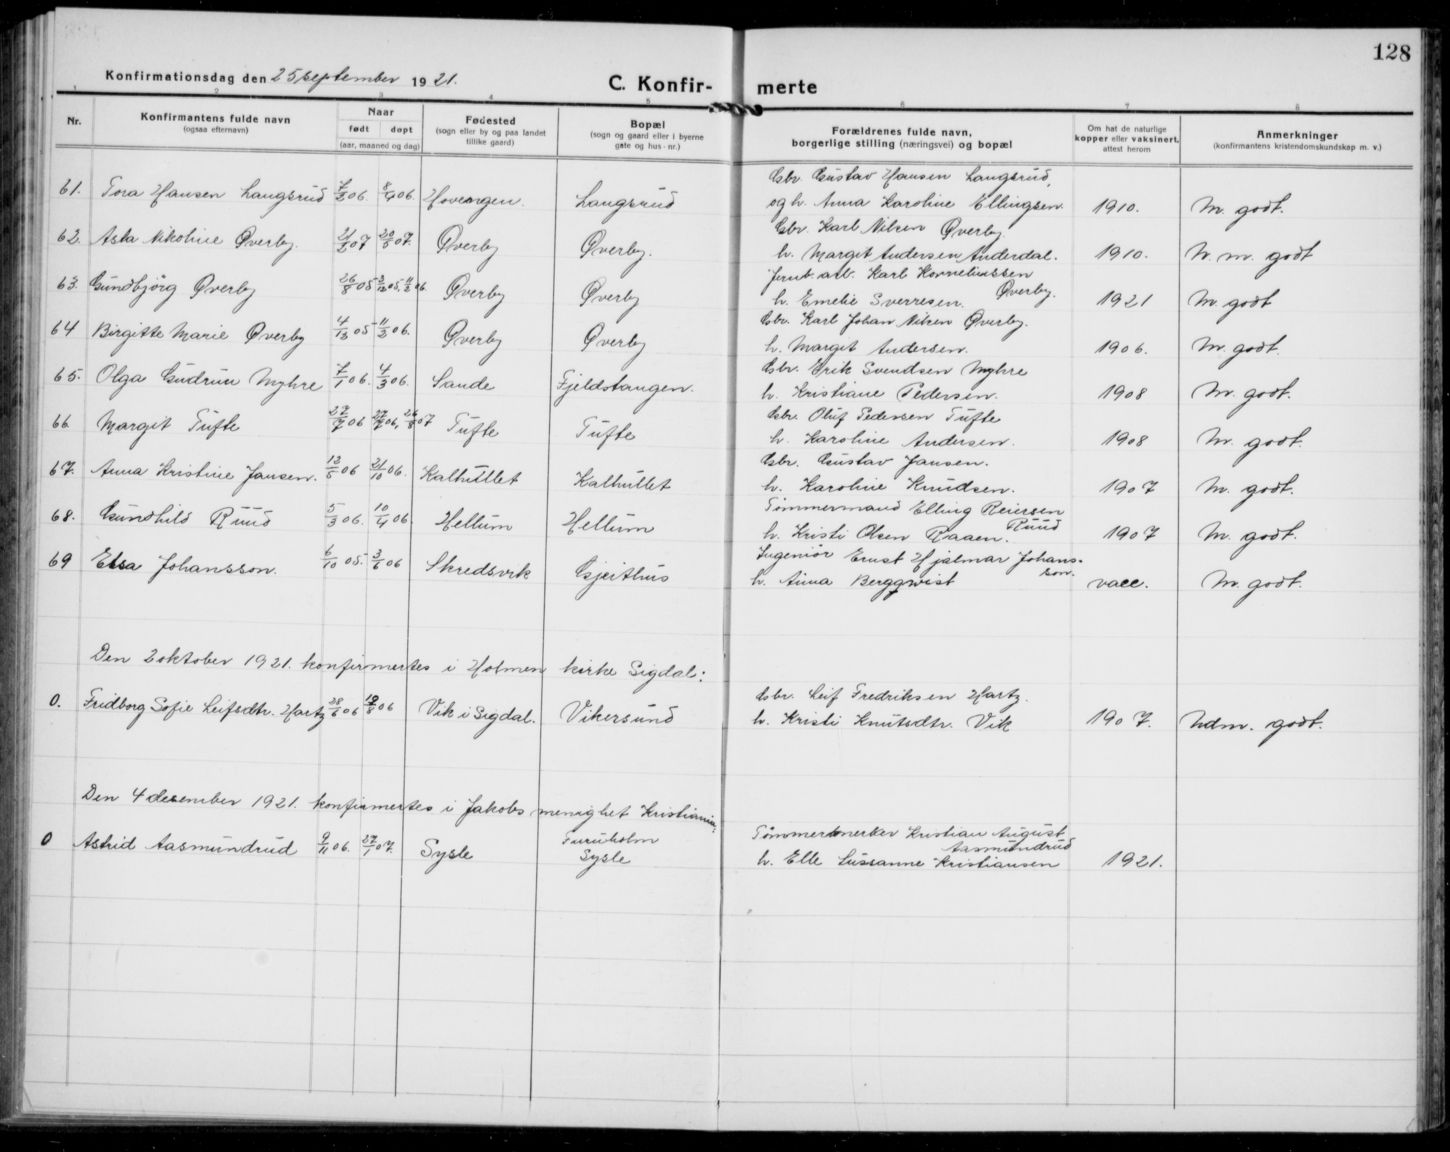 128
Konfirmationsdag den 25 september 1921.
C. Konfir- merte
1 2 3 4 5 6 7 8
Nr. Konfirmantens fulde navn (ogsaa efternavn) Naar født døpt (aar, maaned og dag) Fødested (sogn eller by og paa landet tillike gaard) Bopæl (sogn og gaard eller i byerne gate og hus-nr.) Forældrenes fulde navn, borgerlige stilling (næringsvei) og bopæl Om hat de naturlige kopper eller vaksinert, attest herom Anmerkninger (konfirmantens kristendomskundskap m. v.)
Gbr. Gustav Hansen Langsrud,
61. Tora Hansen Langsrud 06. 8/4 06. Hovengen. Langsrud og h. Anna Karoline Ellingsen. 1910. M. godt.
Gbr. Karl Nilsen Øverby.
62. Asta Nikoline Øverby. 07 20/5 07. Øverby Øverby. h. Margit Andersen Anderdal. 1910. N. m. godt
Jernb. arb. Karl Korneliussen
63. Gundbjörg Øverby 26/8 05 05. 11/3 06 Øverby Øverby h. Emelie Sverresen. Øverby. 1921 M. godt
Gbr. Karl Johan Nilsen Øverby.
64 Birgitte Marie Øverby 05 11/3 06. Øverby Øverby h. Margit Andersen. 1906. M. godt.
Gbr. Erik Svendsen Myhre
65. Olga Gudrun Myhre 7/1 06. 4/3 06. Sande Fjeldstangen. h. Kristiane Pedersen. 1908 M. godt.
Gbr. Oluf Pedersen Tufte
66. Margit Tufte 27/7 06 27/7 06, 26/8 07 Tufte Tufte h. Karoline Andersen. 1908 M. godt.
Gbr. Gustav Jansen.
67. Anna Kristine Jansen. 12/5 06 21/10 06. Kalhullet Kalhullet h. Karoline Knudsen. 1907 M. godt.
Tømmermand Elling Reiersen
Ruud
68. Gundhild Ruud 5/3 06. 10/4 06. Hellum Hellum h. Kristi Olsen Raaen. 1907 M. godt.
Ingeniør Ernst Hjalmar Johans-
son.
69 Elsa Johansson. 6/10 05. 06 Skredsvik Gjeithus h. Anna Bergqvist vacc. M. godt.
Den 2 oktober 1921. konfirmertes i Holmen kirke Sigdal:
Gbr. Leif Fredriksen Hartz.
0. Fridborg Sofie Leifsdtr. Hartz 28/6 06 06 Vik i Sigdal. Vikersund h. Kristi Knutsdtr. Vik 1907. Udm. godt.
Den 4 desember 1921. konfirmertes i Jakobs menighet Kristiania:
Furuholm Tømmermerker Kristian August
Aasmundrud
0 Astrid Aasmundrud 9/11 06. 27/1 07. Sysle Sysle h. Elle Sussanne Kristiansen 1921.